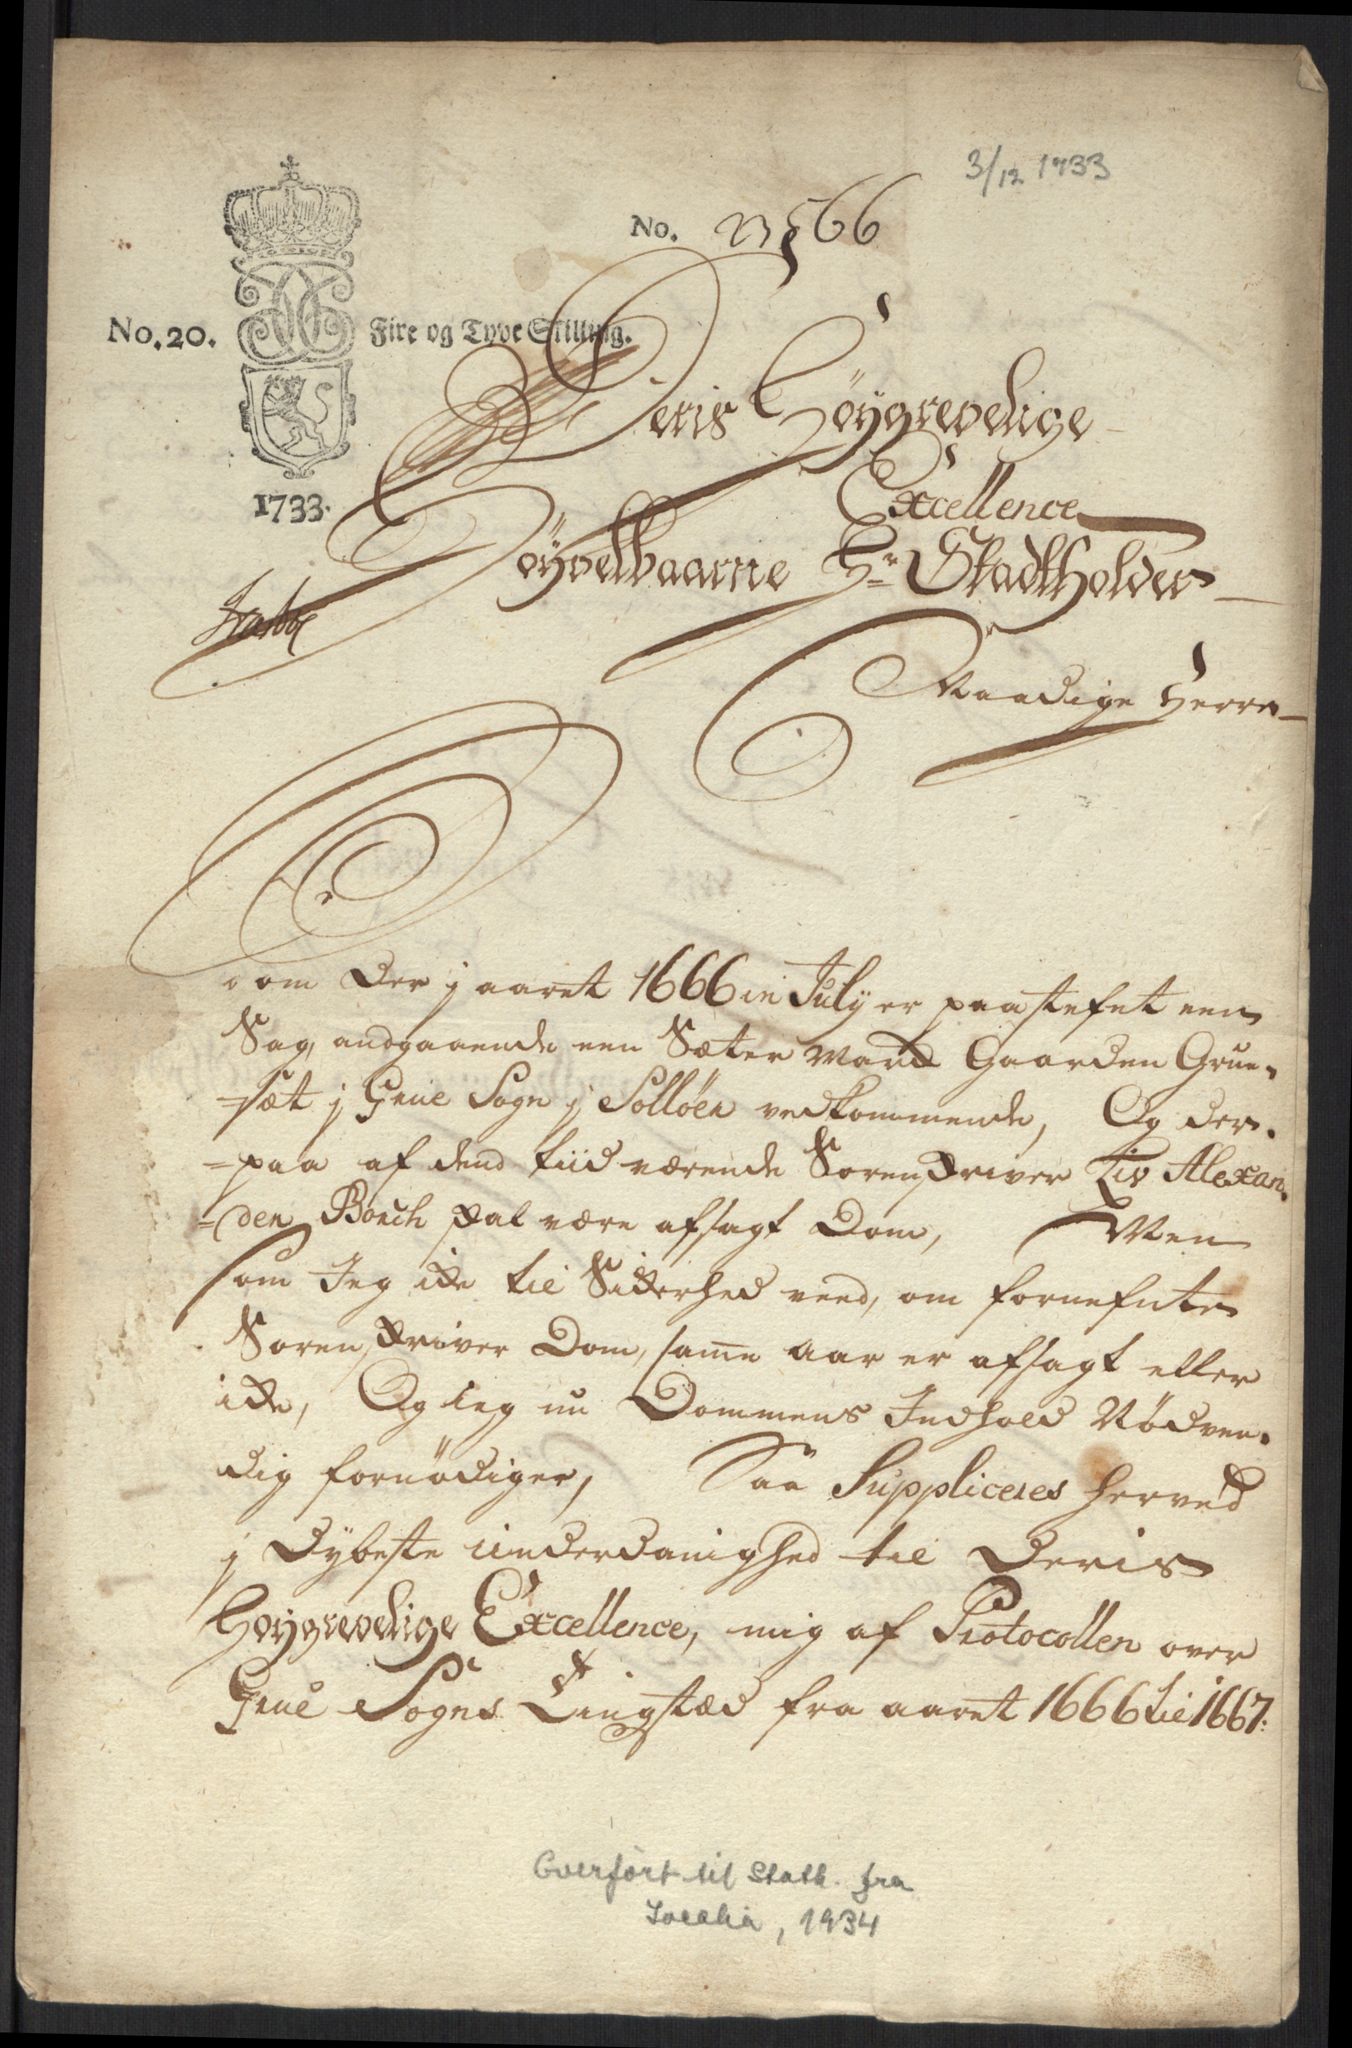 3/12 1733
No. 23566
No. 20. Fire og Tyve Skilling.
1733.
Deris Høygrevelige
Excellence
Høyvelbaarne Hr Stadtholder
Naadige Herre
Som der j aaret 1666 in July er paastefnt een
Sag, andgaaende een Sæter Mand Gaarden Grue-
-sæt j Grue Sogn j Solløer vedkommende, Og der-
=paa af dend tiid værende Sorenskriver Siv Alexan-
=der Borch skal være afsagt Dom, Men
som Jeg icke til Sickerhed veed, om fornefnte
Sorenskriver Dom, samme aar er afsagt eller
icke, Og ieg nu Dommens Indhold Nødven-
dig fornødiger, Saa Suppliceres herved
j dybeste underdanighed til Deris
Høygrevelige Excellence, mig af Protocollen over
Grue Sogns Tingstæd fra aaret 1666 til 1667:
Overført til Stath. fra
Localia, 1934